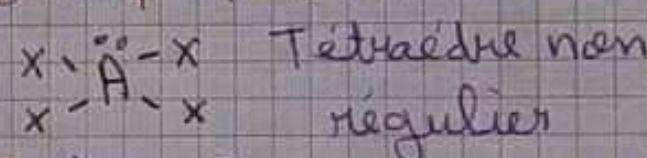 X Ä X Tétraèdre non
X X régulier